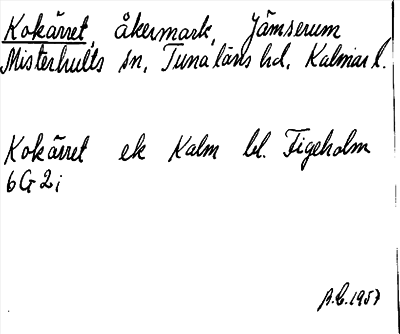 Kokärret, åkermark, Jämserum
Misterhults sn, Tunaläns hd, Kalmar l.
Kokärret ek Kalm bl. Figeholm
6G2i
A.C. 1957